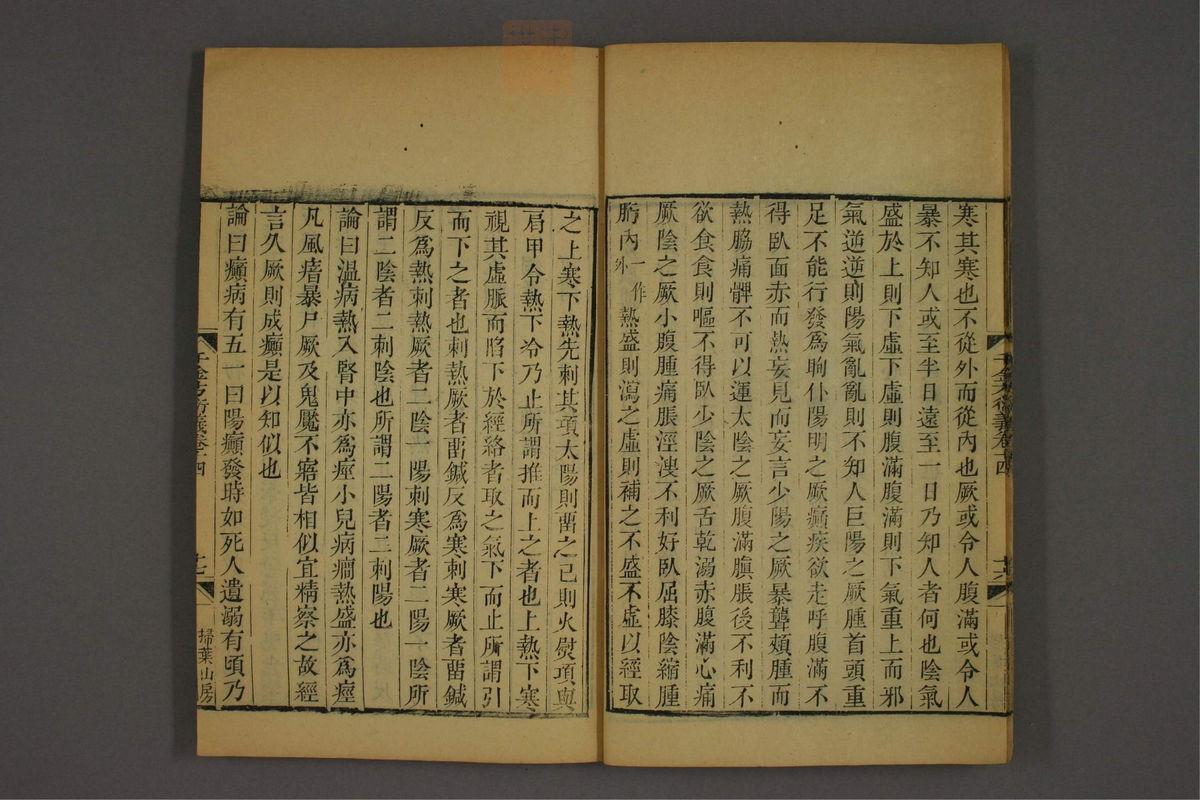 寒其寒也不從外而從內也厥或令人腹滿或令人
暴不知人或至半日遠至一日乃知人者何也陰氣
盛於上則下虛下虛則腹滿腹滿則下氣重上而邪
氣逆逆則陽氣亂亂則不知人巨陽之厥腫首頭重
足不能行發爲眴仆陽明之厥癲疾欲走呼腹滿不
得臥面赤而熱妄見而妄言少陽之厥暴聾頰腫而
熱脇痛髀不可以運太陰之厥腹滿䐜脹後不利不
欲食食則嘔不得臥少陰之厥舌乾溺赤腹滿心痛
厥陰之厥小腹腫痛脹涇溲不利好臥屈膝陰縮腫
胻內一作外熱盛則瀉之虛則補之不盛不虛以經取
千金方衍義卷十四
十六
之上寒下熱先刺其項太陽則畱之已則火熨項與
肩甲令熱下冷乃止所謂推而上之者也上熱下寒
視其虛脈而陷下於經絡者取之氣下而止所謂引
而下之者也刺熱厥者畱鍼反爲寒刺寒厥者畱鍼
反爲熱刺熱厥者二陰一陽刺寒厥者二陽一陰所
謂二陰者二刺陰也所謂二陽者二刺陽也
論曰溫病熱入腎中亦爲痙小兒病癎熱盛亦爲痙
凡風瘖暴尸厥及鬼魘不寤皆相似宜精察之故經
言久厥則成癲是以知似也
論曰癲病有五一曰陽癲發時如死人遺溺有頃乃
千金方衍義卷十四
十七
掃葉山房